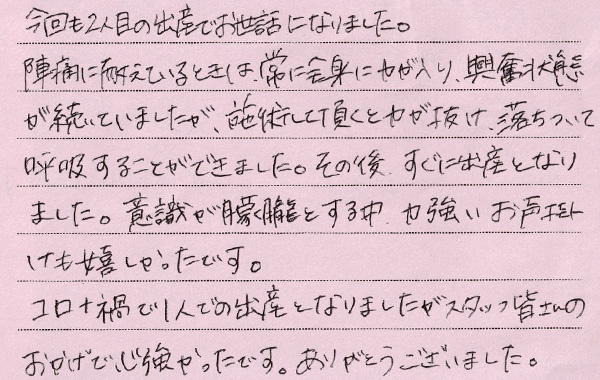 今回も2人目の出産でお世話になりました。
陣痛に耐えているときは、常に全身に力が入り、興奮状態
が続いていましたが、施術して頂くと力が抜け、落ちついて
呼吸することができました。その後、すぐに出産となり
ました。意識が朦朧とする中、力強いお声掛
けも嬉しかったです。
コロナ禍で1人での出産となりましたがスタッフ皆さんの
おかげで心強かったです。ありがとうございました。